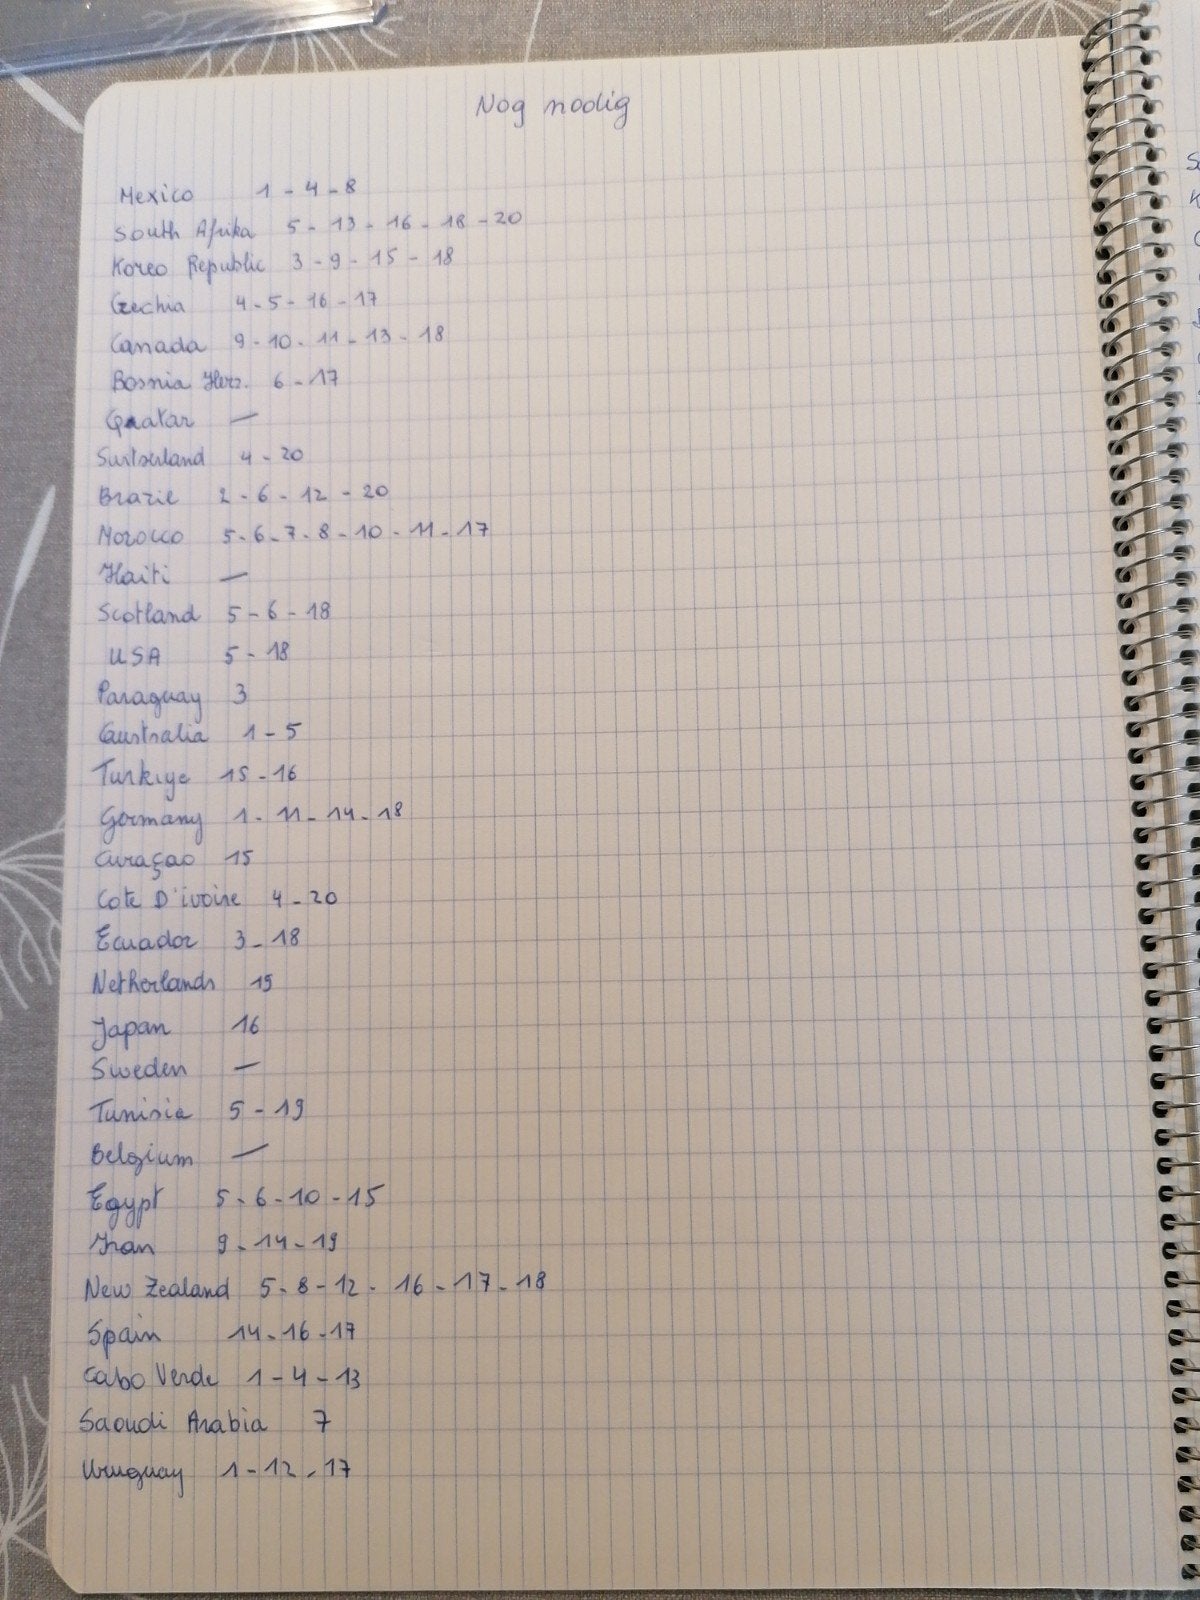 Nog nodig
Mexico 1 - 4 - 8
South Afrika 5 - 13 - 16 - 18 - 20
Koreo Republic 3 - 9 - 15 - 18
Czechia 4 - 5 - 16 - 17
Canada 9 - 10 - 11 - 13 - 18
Bosnia Herz. 6 - 17
Quatar —
Switserland 4 - 20
Brazil 2 - 6 - 12 - 20
Morocco 5 - 6 - 7 - 8 - 10 - 11 - 17
Haiti —
Scotland 5 - 6 - 18
USA 5 - 18
Paraguay 3
Australia 1 - 5
Turkiye 15 - 16
Germany 1 - 11 - 14 - 18
Curaçao 15
Cote D'ivoire 4 - 20
Ecuador 3 - 18
Netherlands 15
Japan 16
Sweden —
Tunisia 5 - 19
Belgium —
Egypt 5 - 6 - 10 - 15
Iran 9 - 14 - 19
New Zealand 5 - 8 - 12 - 16 - 17 - 18
Spain 14 - 16 - 17
Cabo Verde 1 - 4 - 13
Saoudi Arabia 7
Uruguay 1 - 12 - 17